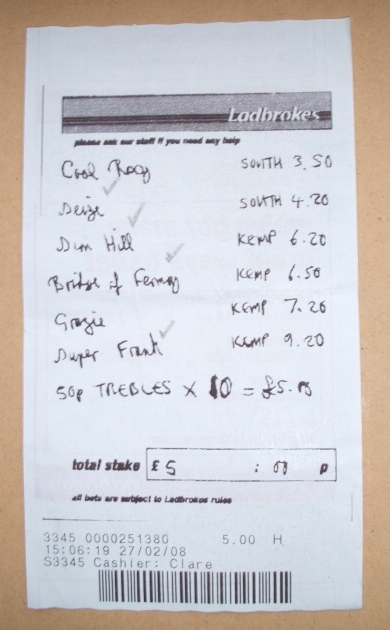 Ladbrokes
please ask our staff if you need any help
Cool Roxy SOUTH 3.50
Seize SOUTH 4.20
Sun Hill KEMP 6.20
Bridge of Fermoy KEMP 6.50
Grazie KEMP 7.20
Super Frank KEMP 9.20
50p TREBLES X 10 = £5.00
total stake £5 : 00 p
all bets are subject to Ladbrokes rules
3345 0000251380 5.00 H
15:06:19 27/02/08
S3345 Cashier: Clare